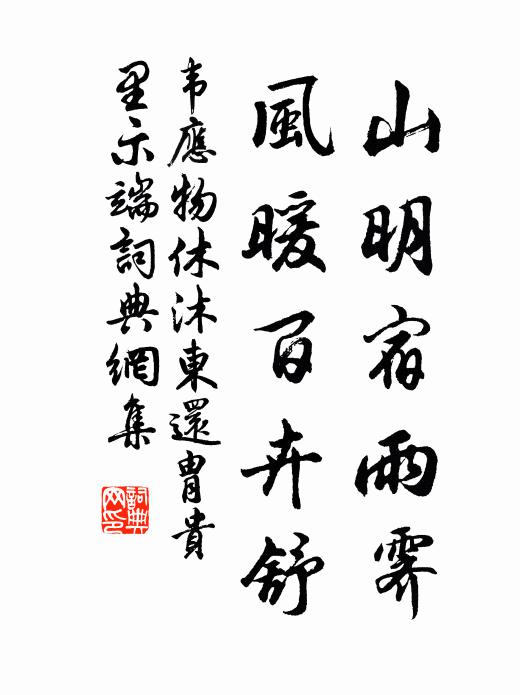 山明宿雨霽
風暖百卉舒
韦應物休沐東還胄貴
里示端詞典網集
詞典
网印